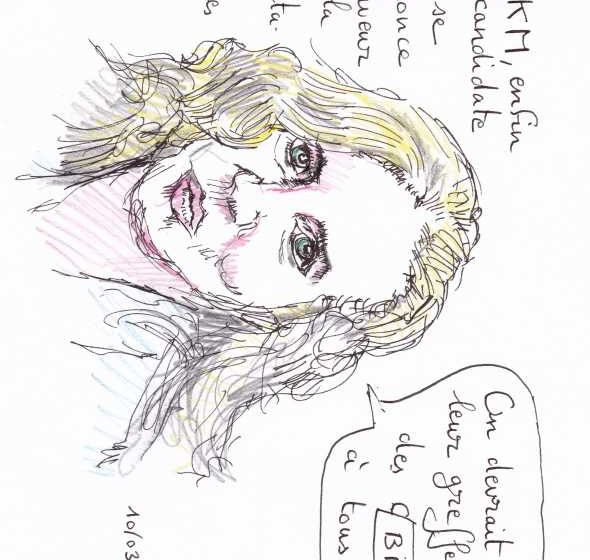 KM, enfin
candidate
se
once
ueur
la
ta-
es
On devrait
leur greffe
des
à tous
10/03